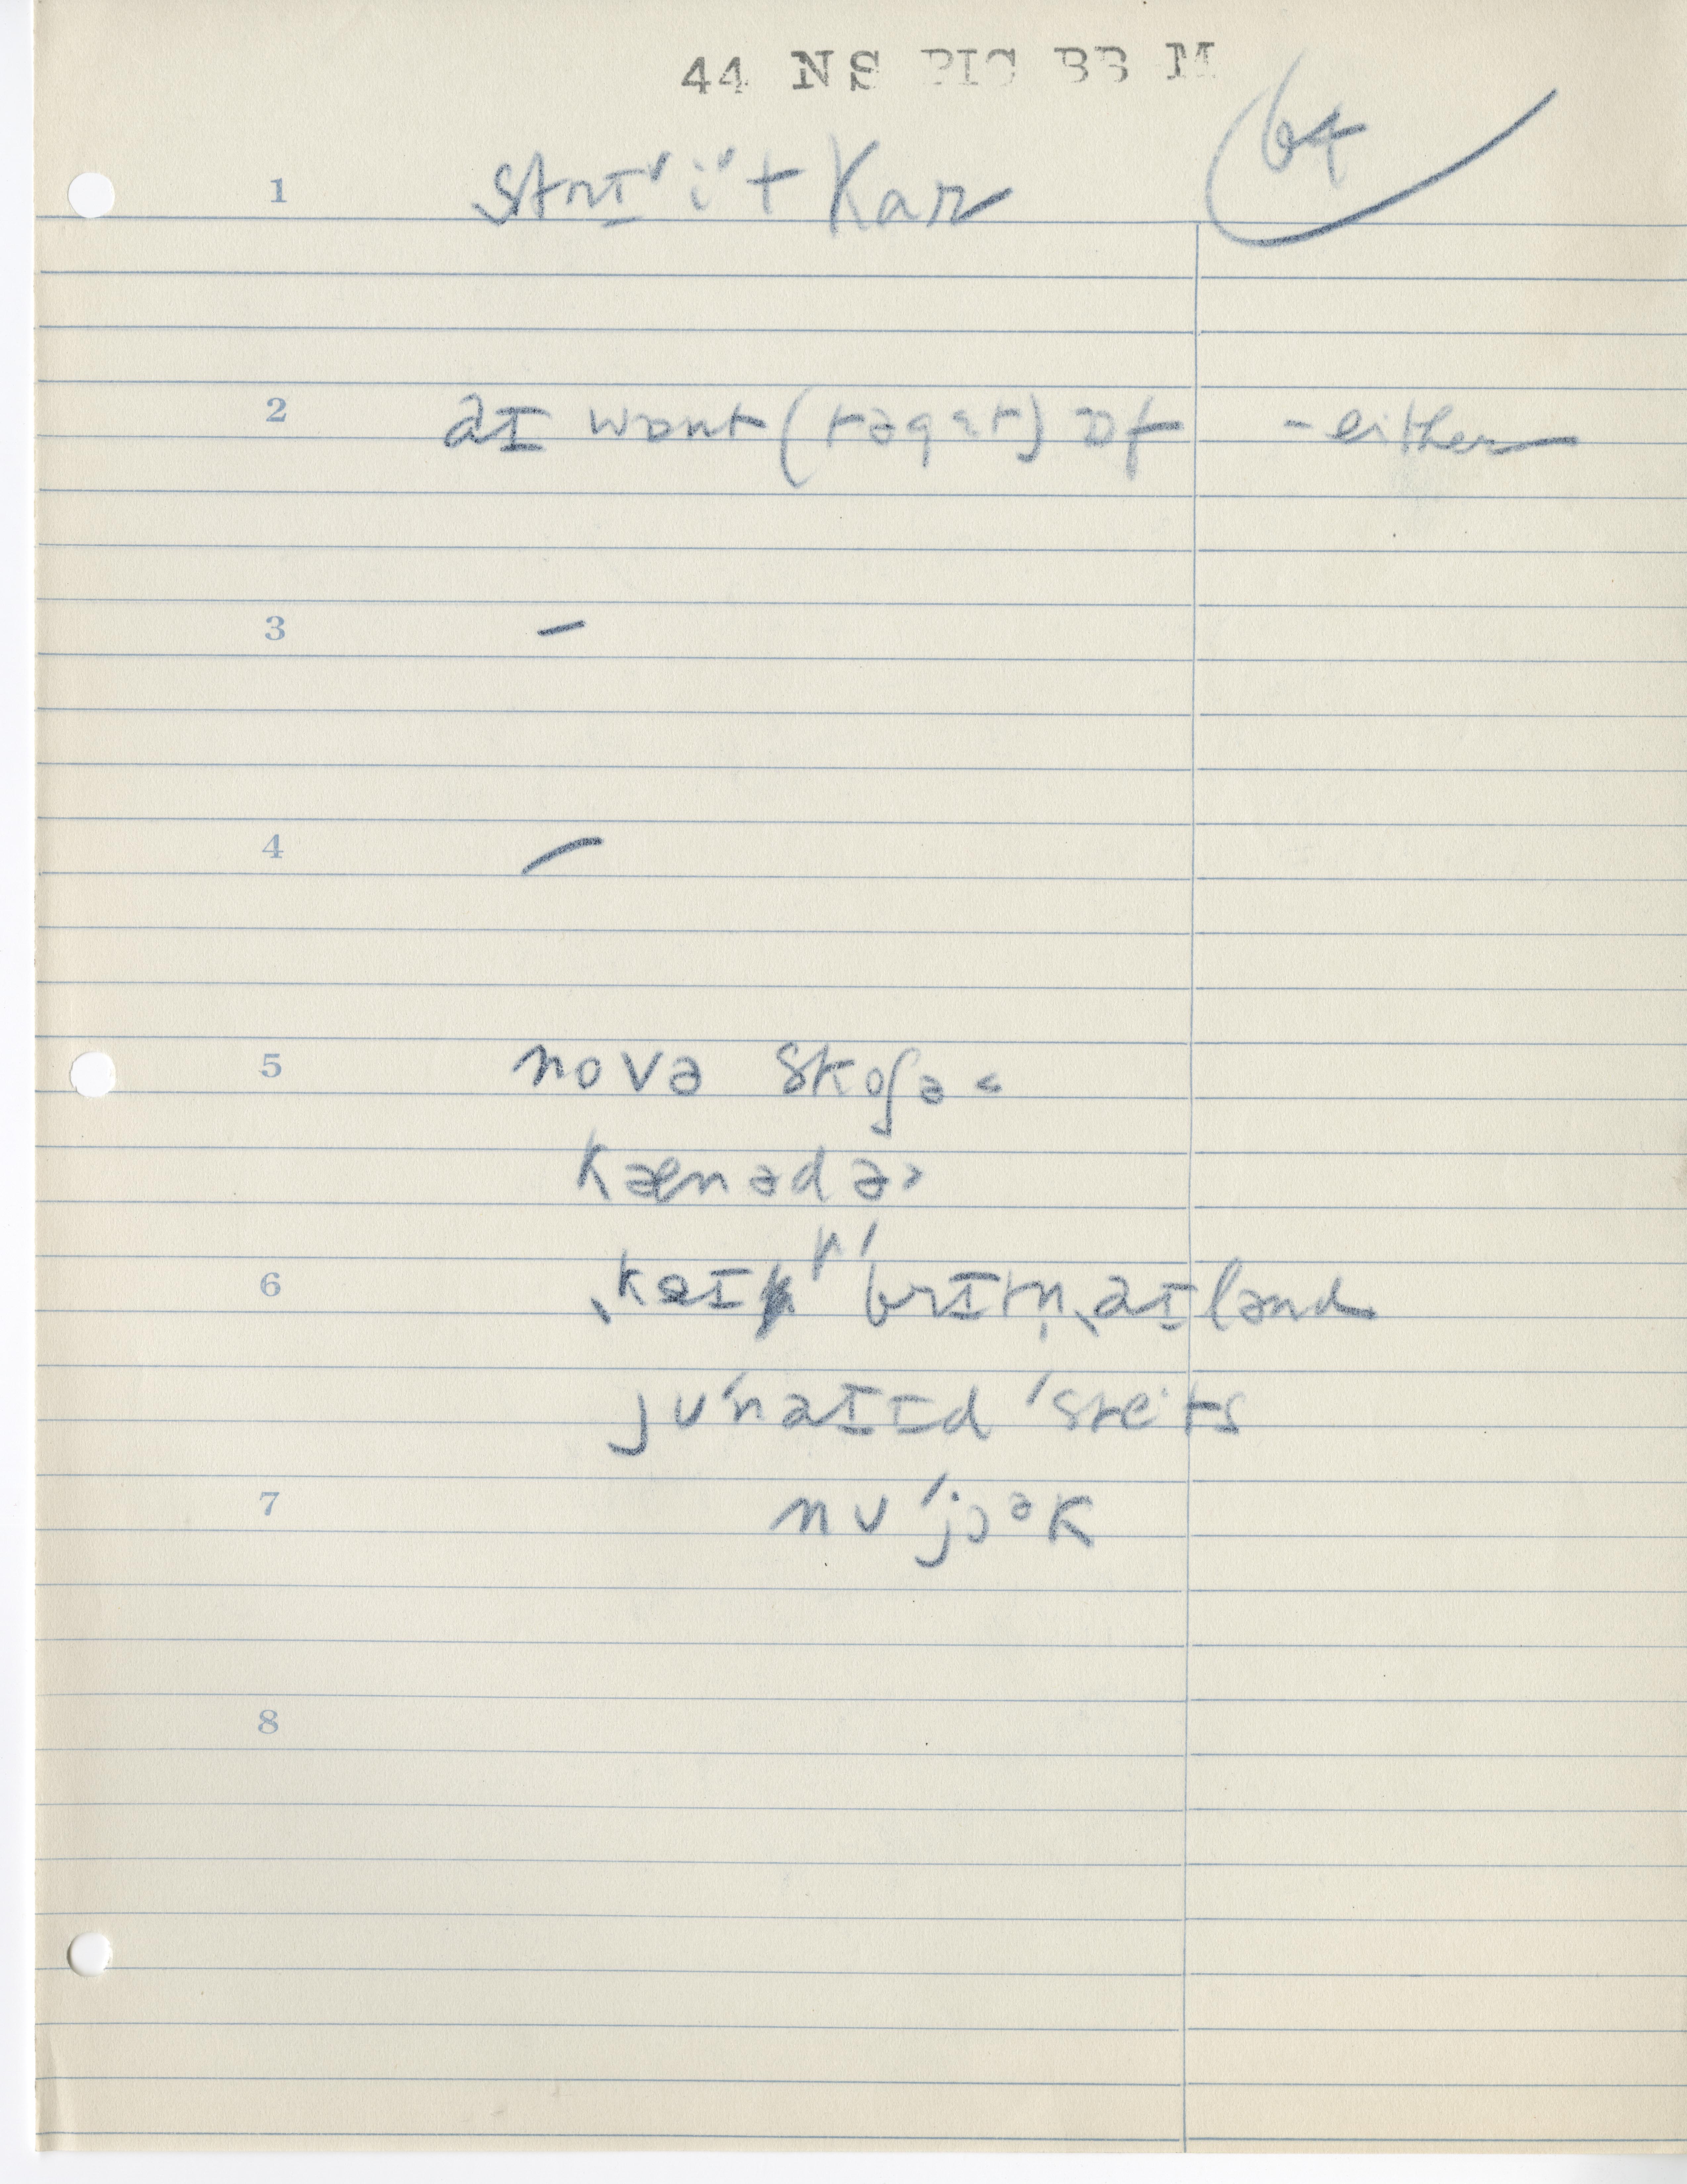 44 NS PIC BB M
64
1 strɪˇiˇt kar
2 aɪ wɒnt (təgɛt) ɒf - either
3 –
4 –
5 novə skoʃə˂
kænədə˃
6 ˌkeɪp ˈbrɪtn̩ ˌaɪlənd
juˈnaɪɪd ˈsteˑts
7 nuˈjɔᵊk
8